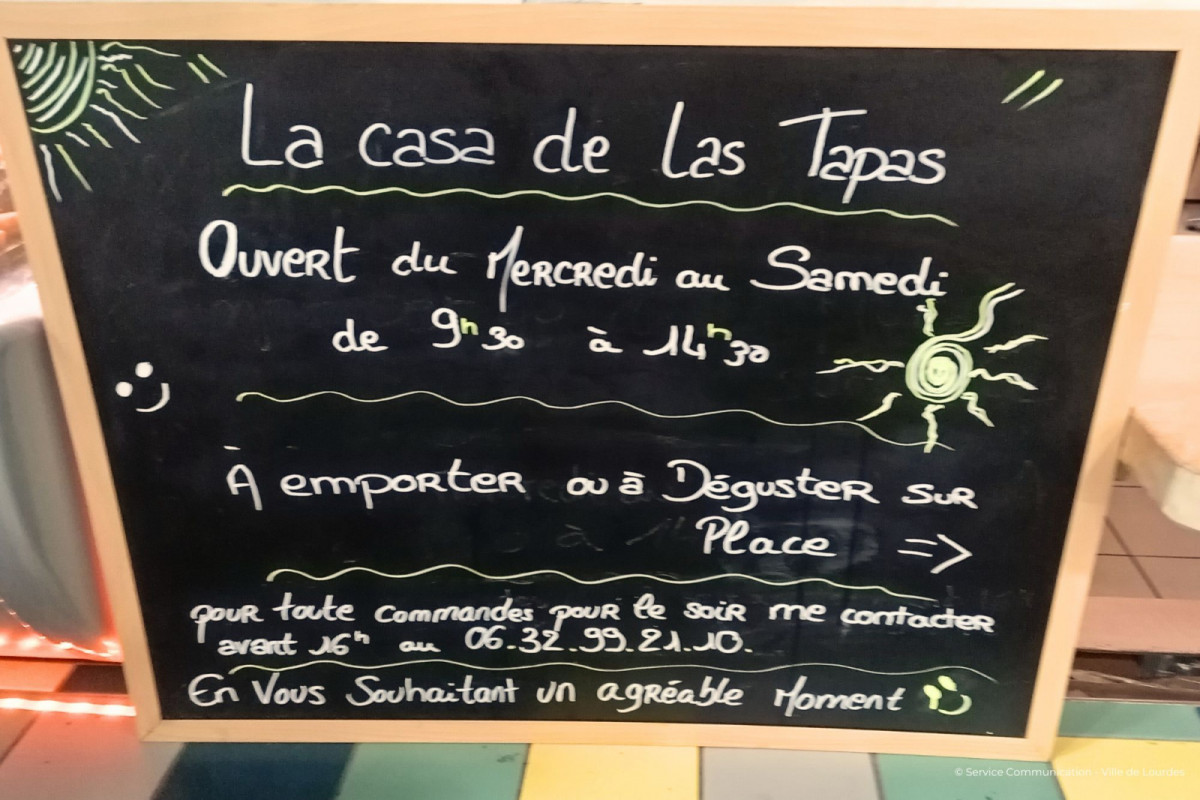 La casa de Las Tapas
Ouvert du Mercredi au Samedi
de 9h30 à 14h30
À emporter ou à Déguster sur
Place =>
pour toute commandes pour le soir me contacter
avant 16h au 06.32.99.21.10.
En Vous Souhaitant un agréable Moment
© Service Communication - Ville de Lourdes